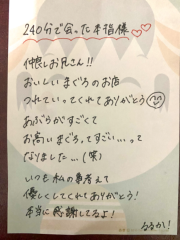 240分で会った本指様♡♡
仲良しお兄さん!!
おいしいまぐろのお店
つれていってくれてありがとう
あぶらがすごくて
お高いまぐろ、てすごい...って
なりました...(笑)
いつも私の事考えて
優しくしてくれてありがとう!
本当に感謝してるよ!
るるか!